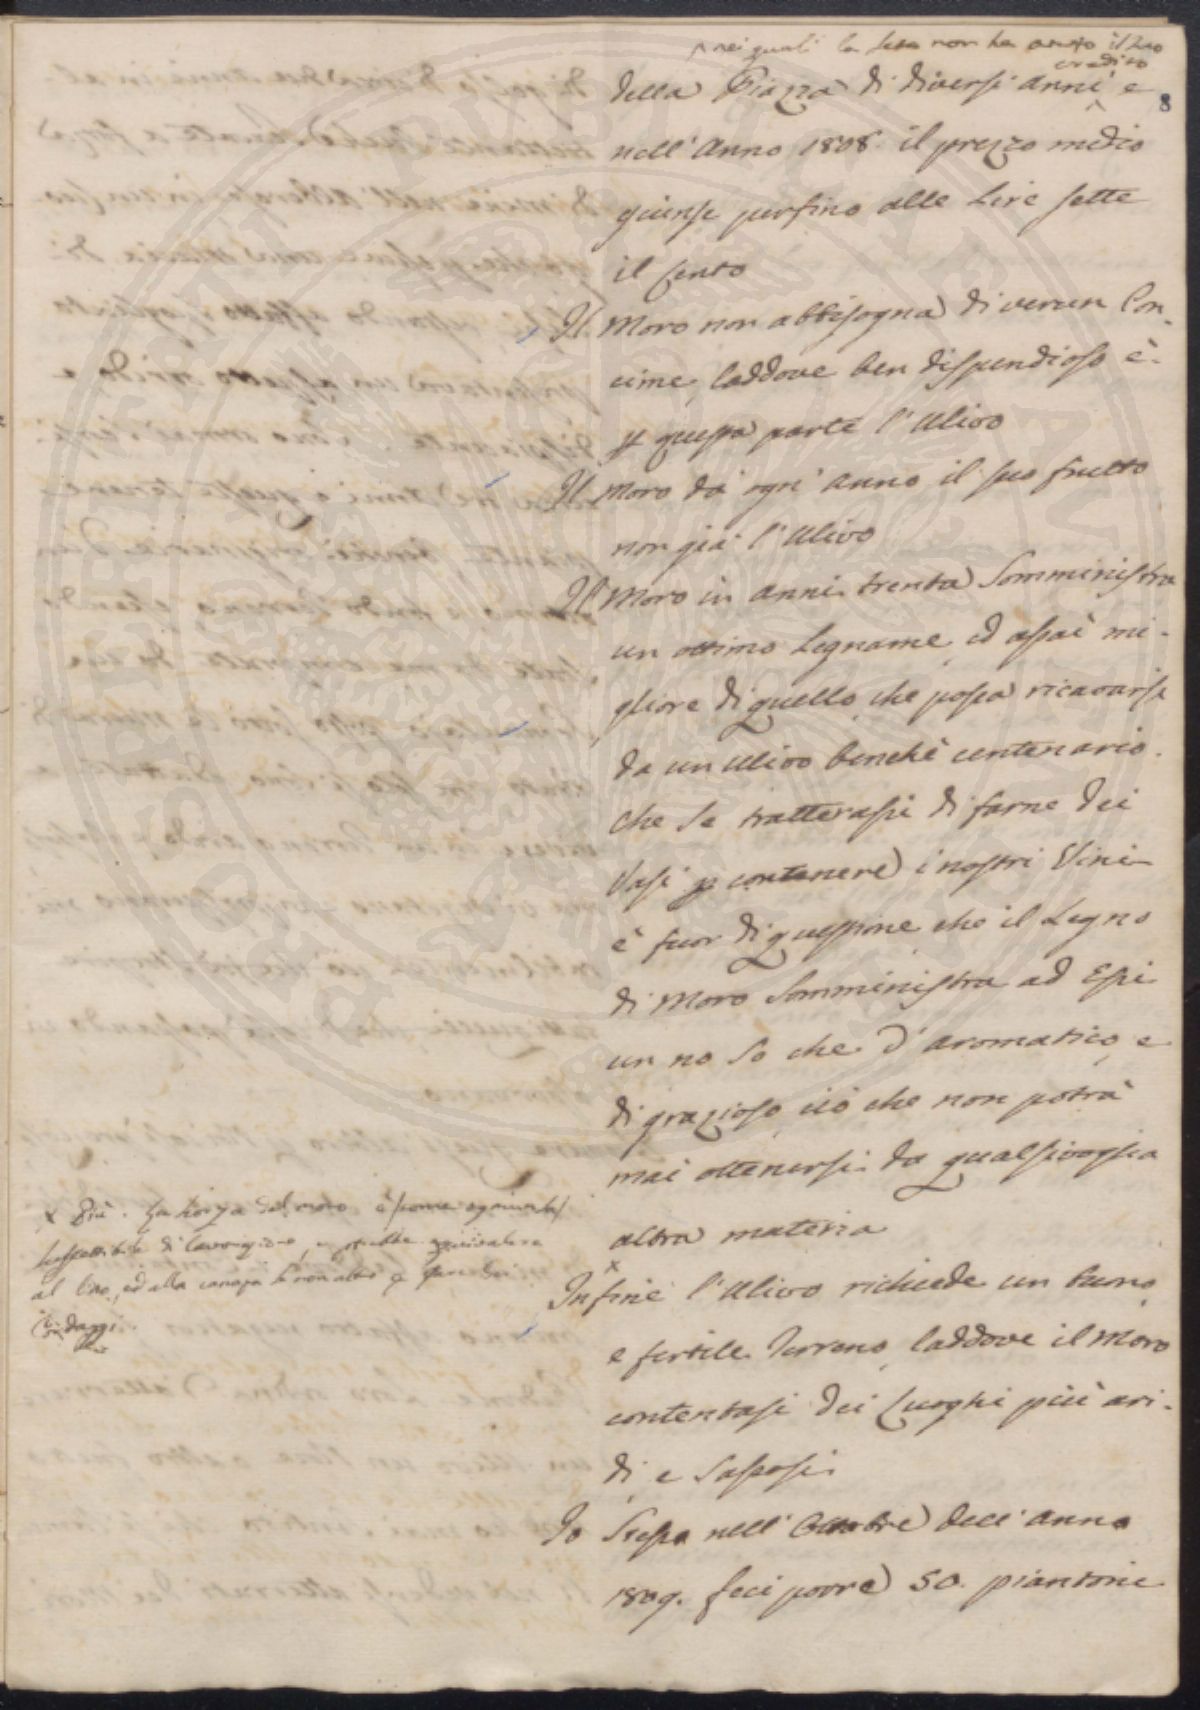 ^ nei quali la seta non ha avuto il suo
credito
della Piazza di diversi anni ^ e
8
nell' Anno 1808. il prezzo medio
giunse perfino alle Lire sette
il Cento
Il Moro non abbisogna di verun Con-
cime, laddove ben dispendioso è
p questa parte l'Ulivo
Il Moro dà ogni anno il suo frutto
non già l'Ulivo
Il Moro in anni trenta somministra
un ottimo Legname, ed assai mi-
gliore di quello, che possa ricavarsi
da un Ulivo benchè centenario.
Che se tratterassi di farne dei
Vasi p contenere i nostri Vini
è fuor di questione che il Legno
di Moro somministra ad Essi
un no so che d'aromatico, e
di grazioso, ciò che non potrà
mai ottenersi da qualsivoglia
altra materia
x
Infine l'Ulivo richiede un buono,
e fertile Terreno, laddove il Moro
contentasi dei Luoghi più ari-
di, e sassosi.
Io Stesso nell' Ottobre dell' anno
1809. feci porre 50. piantoni
x Più. La scorza del moro è come ognun sa
suscettibile di lavorazione, e potrebbe equivalere
al lino, ed alla canapa se non altro p fare dei
Cordaggi.